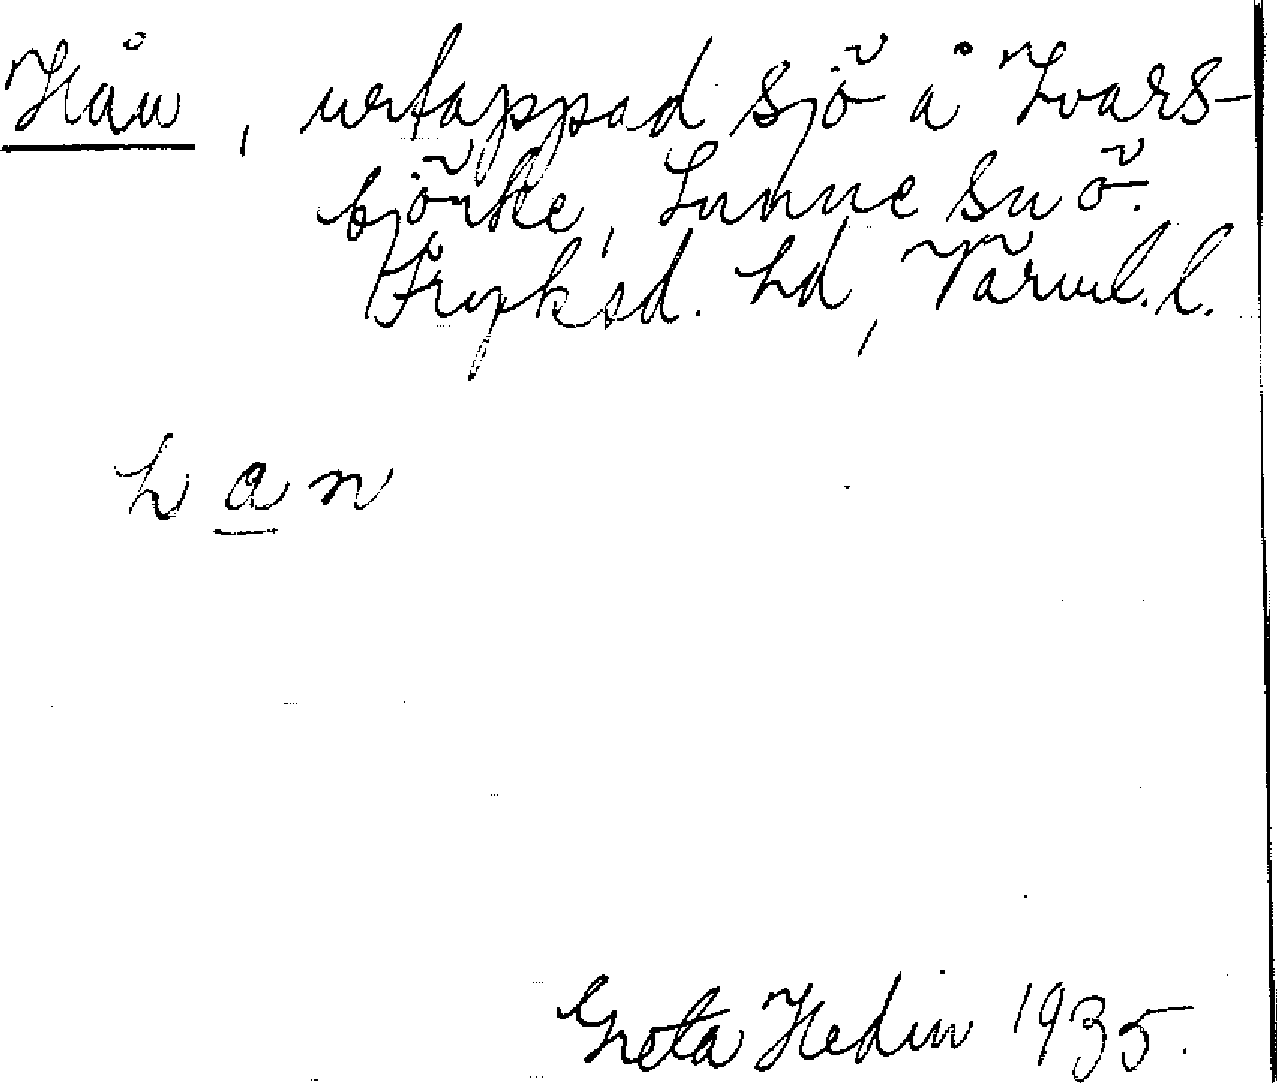 Hån, urtappad sjö å Ivars-
björke, Sunne sn ö.
Fryksd. hd, Värml. l.
han
Greta Hedin 1935.